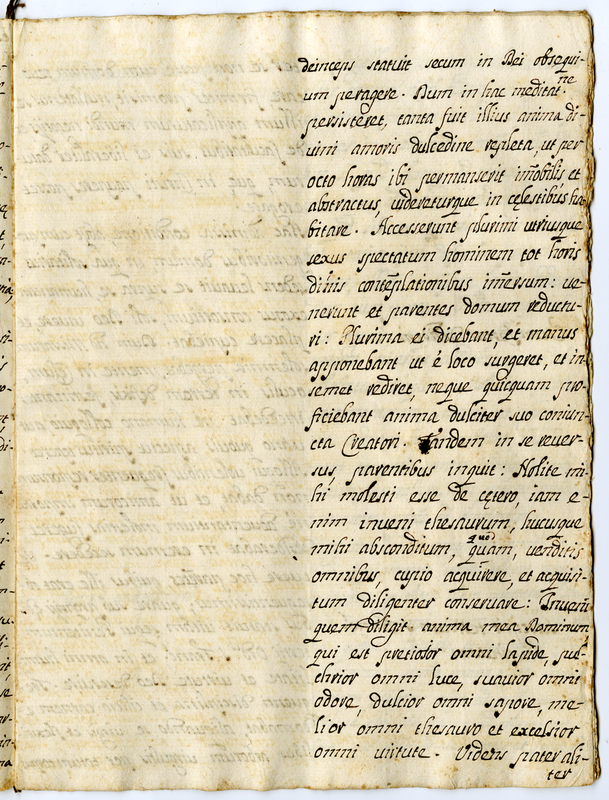 deinceps statuit secum in Dei obsequi-
um peragere. Dum in hac meditatne
persisteret, tanta fuit illius anima di-
vini amoris dulcedine repleta, ut per
octo horas ibi permanserit im̃obilis et
abstractus, videreturque in cęlestibus ha
bitare. Accesserunt plurimi utriusque
sexus spectatum hominem tot horis
divinis contẽplationibus im̃ersum: ve-
nerunt et parentes domum reductu-
ri: Plurima ei dicebant, et manus
apponebant ut è loco surgeret, et in
semet rediret, neque quicquam pro-
ficiebant anima dulciter suo coniun-
cta Creatori. Tandem in se rever-
sus parentibus inquit: Nolite mi-
hi molesti esse de cętero, iam e-
nim inveni thesaurum, hucusque
mihi absconditum, quam, quo venditis
omnibus, cupio acquirere, et acquisi-
tum diligenter conservare: Inveni
quem diligit anima mea Dominum
qui est pretiosior omni lapide, pul-
chrior omni luce, suavior omni
odore, dulcior omni sapore, me-
lior omni thesauro et excelsior
omni virtute. Videns pater ali-
ter